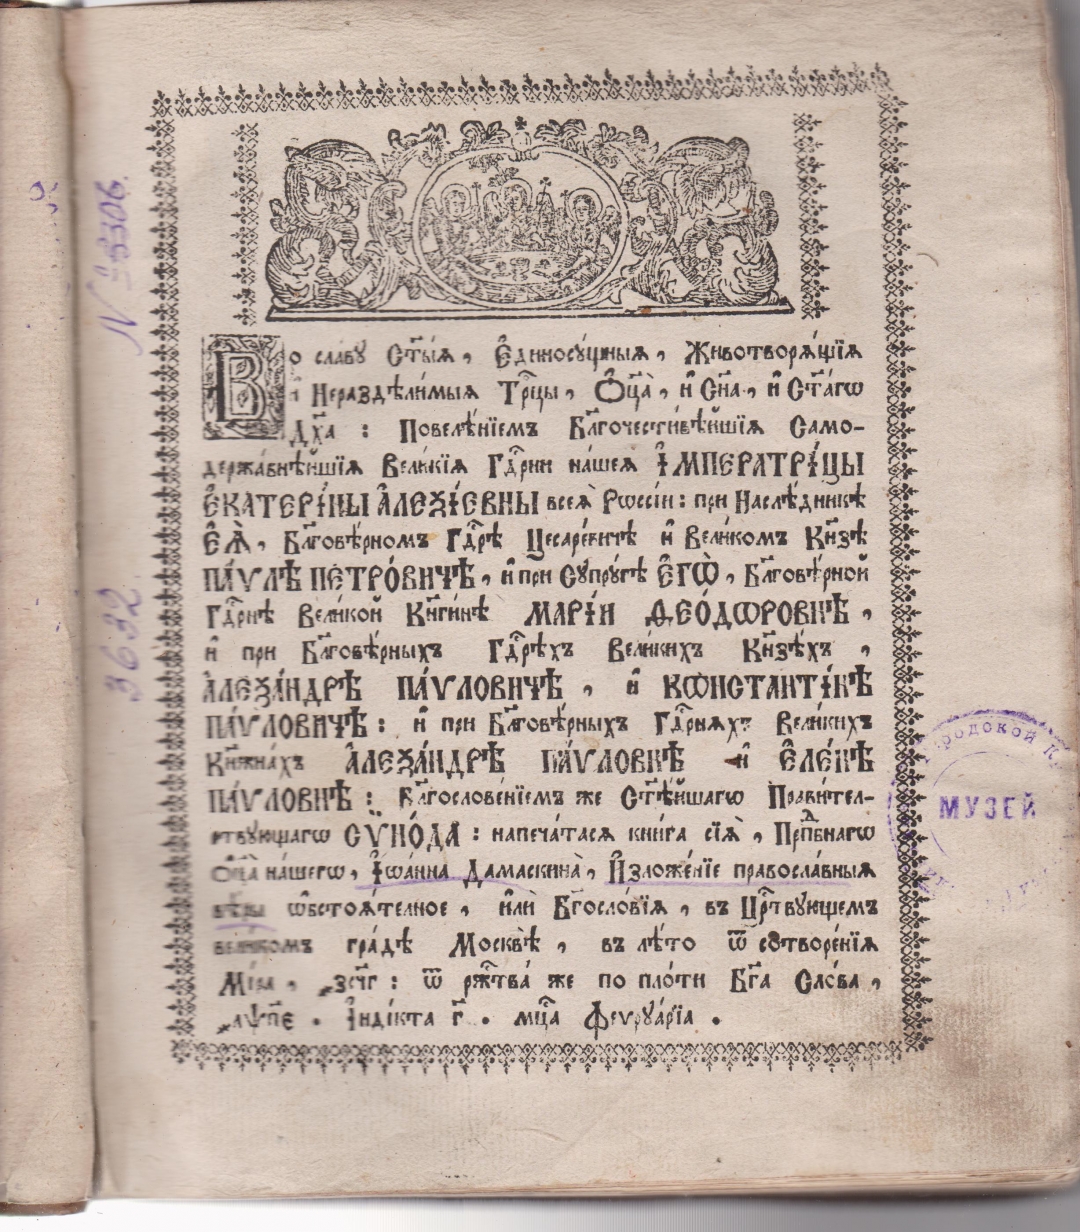 Во славу Ст҃ы́ѧ, Є҆диносꙋ́щныѧ, Животворѧ́щїѧ
и҆ Нераздѣли́мыѧ Трⷪ҇цы, Ѻ҆ц҃а̀, и҆ Сн҃а, и҆ Ст҃а́гѡ
Дх҃а : Повелѣ́нїемъ Бл҃гочести́вѣйшїѧ Само-
держа́внѣйшїѧ Вели́кїѧ Гдⷭ҇рни на́шеѧ І҆МПЕРАТРІ́ЦЫ
Є҆КАТЕРІ́НЫ А҆ЛЕѮІ́ЕВНЫ всеѧ̀ Рѡссі́и : при Наслѣ́дникѣ
Є҆Ѧ̀, Бл҃говѣ́рномъ Гдⷭ҇рѣ Цесаре́вичѣ и҆ Вели́комъ Кнѧ҃зѣ
ПА́ѴЛѢ ПЕТРО́ВИЧѢ, и҆ при Сꙋпрꙋ́гѣ Є҆ГѠ̀, Бл҃говѣ́рной
Гдⷭ҇рнѣ Вели́кой Кнѧ҃ги́нѣ МАРІ́И ѲЕО́ДѠРОВНѢ,
и҆ при Бл҃говѣ́рныхъ Гдⷭ҇рѣхъ Вели́кихъ Кнѧ҃зѣ́хъ,
А҆ЛЕѮА́НДРѢ ПА́ѴЛОВИЧѢ, и҆ КѠНСТАНТІ́НѢ
ПА́ѴЛОВИЧѢ : и҆ при Бл҃говѣ́рныхъ Гдⷭ҇рнѧхъ Вели́кихъ
Кнѧ҃жна́хъ А҆ЛЕѮА́НДРѢ ПА́ѴЛОВНѢ и҆ Є҆ЛЕ́НѢ
ПА́ѴЛОВНѢ : Бл҃гослове́нїемъ же Ст҃ѣ́йшагѡ Прави́тел-
ствꙋющагѡ СѴ̈НО́ДА : напеча́тасѧ кни́га сїѧ̀, Прпⷣбнагѡ
Ѻ҆ц҃а̀ на́шегѡ, І҆ѡа́нна Дамаскина̀, И҆зложе́нїе правосла́вныѧ
вѣ́ры ѡ҆бстоѧ́телное, и҆лѝ Бг҃осло́вїѧ, въ Црⷭ҇твꙋющемъ
вели́комъ гра́дѣ Москвѣ̀, въ лѣ́то ѿ сотворе́нїѧ
Мі́ра, ҂зсч҃г : ѿ рж҃тва́ же по пло́ти Бг҃а Сло́ва,
҂аѱп҃е . І҆нді́кта г҃ . мцⷭ҇а Феѵрꙋа́рїа .
N 3306.
3632.
МУЗЕЙ